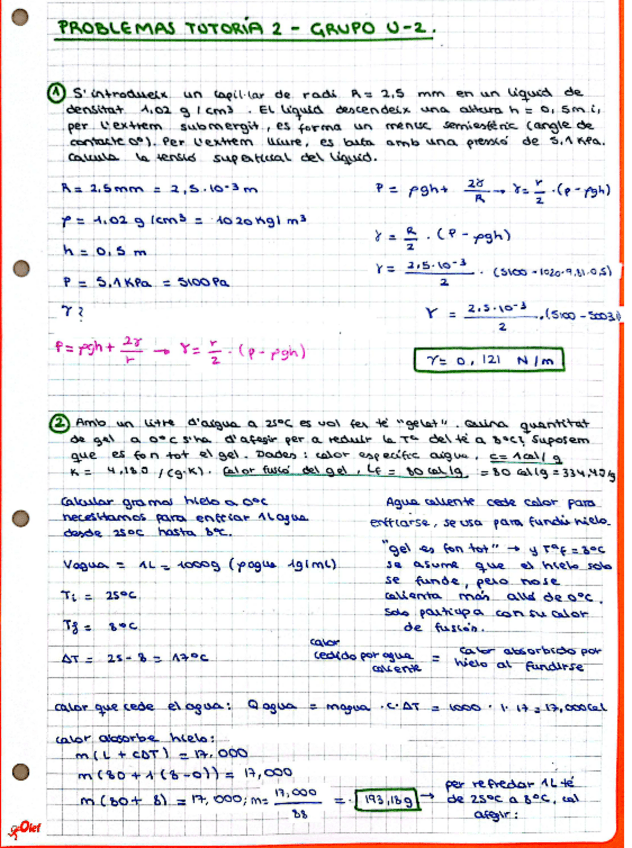 PROBLEMAS TUTORÍA 2 - GRUPO U-2.
① S'introdueix un capil·lar de radi R = 2,5 mm en un líquid de
densitat 1,02 g/cm³. El líquid descendeix una altura h = 0,5m i,
per l'extrem submergit, es forma un menisc semiesfèric (angle de
contacte 0º). Per l'extrem lliure, es bufa amb una pressió de 5,1 KPa.
Calcula la tensió superficial del líquid.
R = 2,5mm = 2,5·10⁻³ m
ρ = 1.02 g/cm³ = 1020 Kg/m³
h = 0,5 m
P = 5,1 KPa = 5100 Pa
γ?
P = ρgh + 2γ/r → γ = r/2 · (P - ρgh)
P = ρgh + 2γ/R → γ = r/2 · (P - ρgh)
γ = R/2 · (P - ρgh)
γ = 2,5·10⁻³/2 · (5100 - 1020·9,81·0,5)
γ = 2,5·10⁻³/2 · (5100 - 5003)
γ = 0,121 N/m
② Amb un litre d'aigua a 25ºC es vol fer té "gelat". Quina quantitat
de gel a 0ºC s'ha d'afegir per a reduir la Tª del té a 8ºC?, suposem
que es fon tot el gel. Dades: calor específic aigua, c = 1 cal/g
K = 4,18 J/(g·K). Calor fusió del gel, Lf = 80 cal/g = 80 cal/g = 334,4 J/g
Calcular gramos hielo a 0ºC
necesitamos para enfriar 1L agua
desde 25ºC hasta 8ºC.
Vagua = 1L = 1000g (ρagua 1g/mL)
Ti = 25ºC
Tf = 8ºC
ΔT = 25 - 8 = 17ºC
Agua caliente cede calor para
enfriarse, se usa para fundir hielo.
"gel es fon tot" → y Tªf = 8ºC
se asume que el hielo solo
se funde, pero no se
calienta más allá de 0ºC.
Solo participa con su calor
de fusión.
calor cedido por agua caliente = calor absorbido por hielo al fundirse
calor que cede el agua: Qagua = magua · c · ΔT = 1000 · 1 · 17 = 17,000 cal
calor absorbe hielo:
m(L + cΔT) = 17.000
m(80 + 1(8-0)) = 17,000
m(80 + 8) = 17,000; m = 17,000/88 = 193,18g → per refredar 1L té
de 25ºC a 8ºC, cal
afegir:
Olef